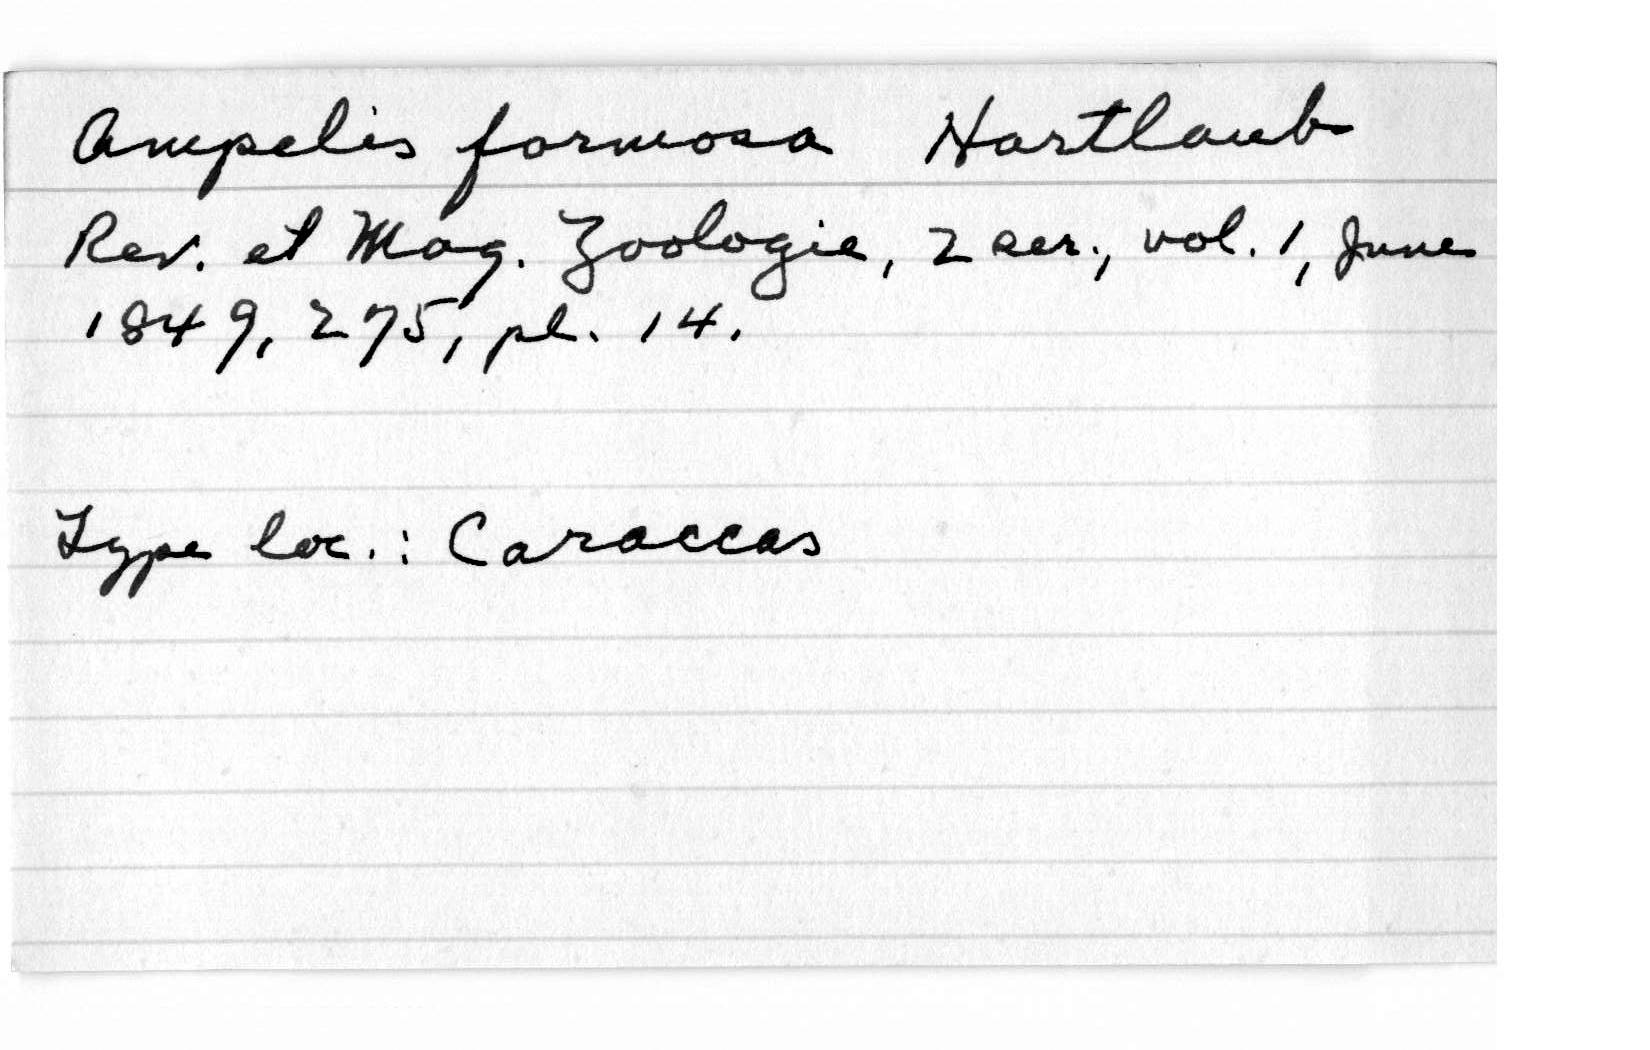 Ampelis formosa Hartlaub
Rev. et Mag. Zoologie, 2 ser., vol. 1, June
1849, 275, pl. 14.
Type loc. : Caraccas